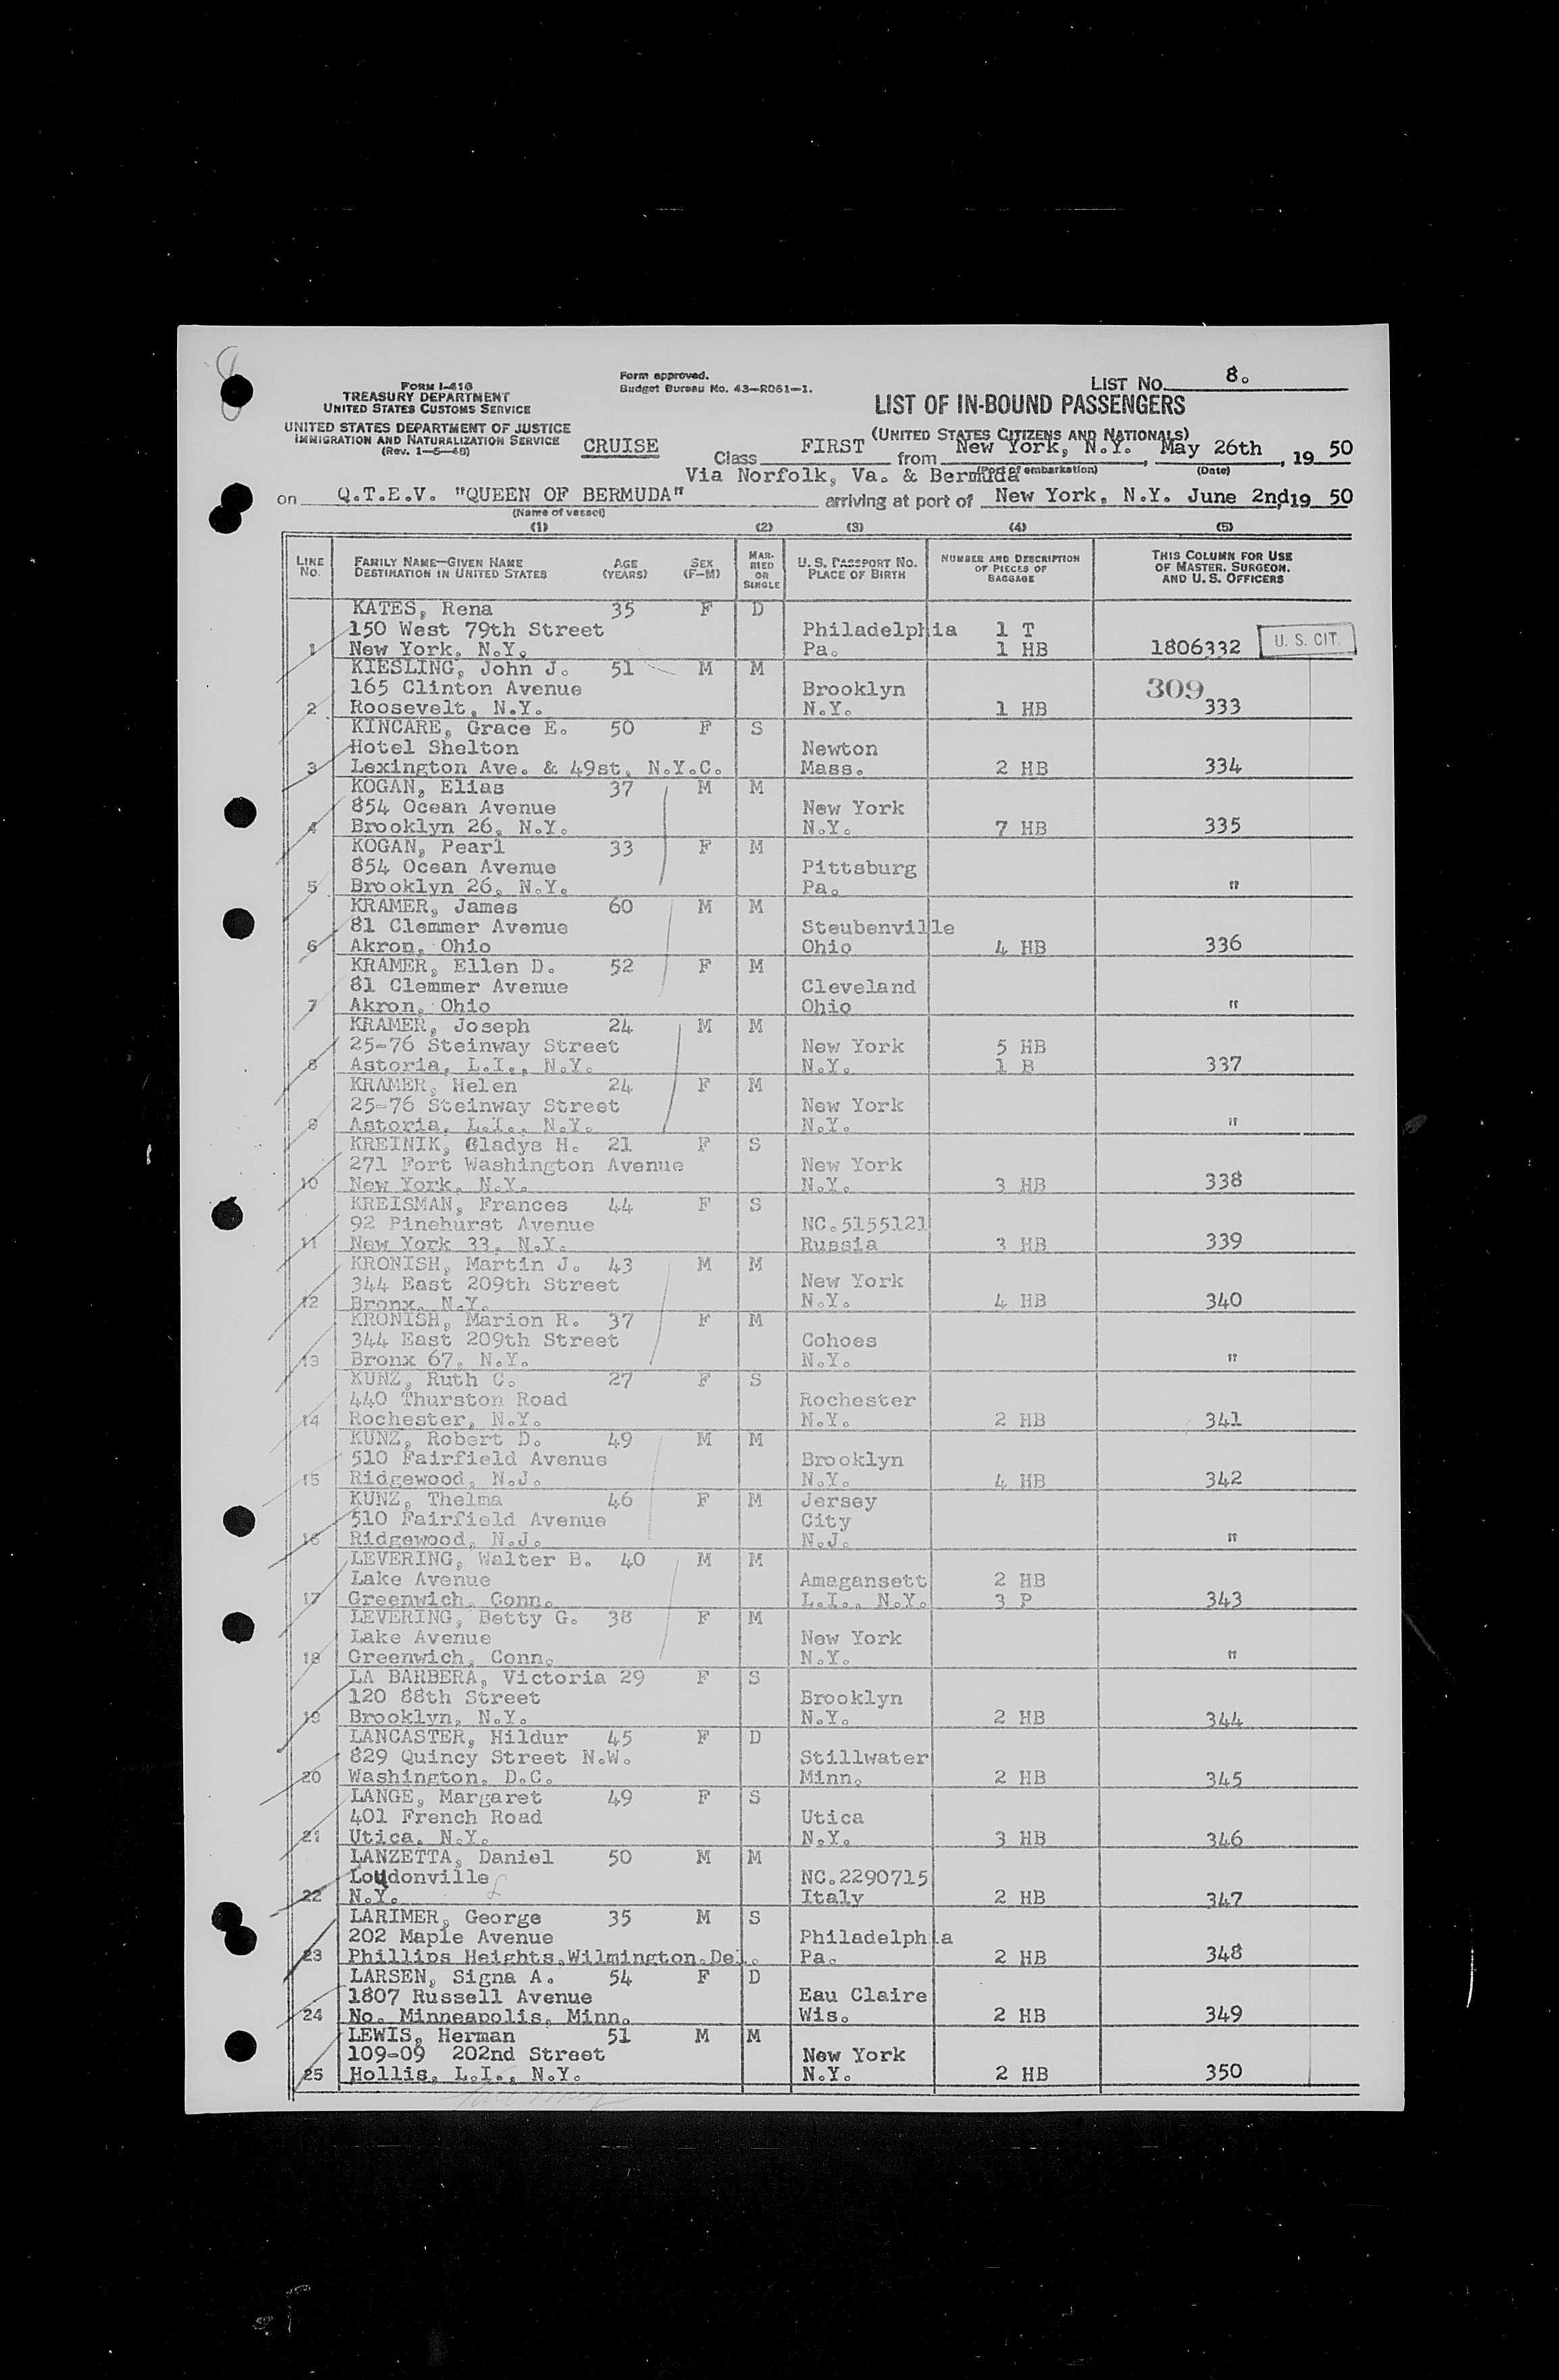 8
FORM I-416
TREASURY DEPARTMENT
UNITED STATES CUSTOMS SERVICE
UNITED STATES DEPARTMENT OF JUSTICE
IMMIGRATION AND NATURALIZATION SERVICE
(Rev. 1-5-48)
Form approved.
Budget Bureau No. 43-R061-1.
LIST NO. 8.
LIST OF IN-BOUND PASSENGERS
(UNITED STATES CITIZENS AND NATIONALS)
CRUISE Class FIRST from New York, N.Y. , May 26th , 19 50
(Port of embarkation) (Date)
Via Norfolk, Va. & Bermuda
on Q.T.E.V. "QUEEN OF BERMUDA" arriving at port of New York, N.Y. June 2nd, 19 50
(Name of vessel)
(1) (2) (3) (4) (5)
LINE NO. FAMILY NAME—GIVEN NAME DESTINATION IN UNITED STATES AGE (YEARS) SEX (F-M) MARRIED OR SINGLE U. S. PASSPORT NO. PLACE OF BIRTH NUMBER AND DESCRIPTION OF PIECES OF BAGGAGE THIS COLUMN FOR USE OF MASTER, SURGEON, AND U. S. OFFICERS
KATES, Rena 35 F D
150 West 79th Street Philadelphia 1 T
1 New York, N.Y. Pa. 1 HB 1806332 U. S. CIT.
KIESLING, John J. 51 M M
165 Clinton Avenue Brooklyn 309
2 Roosevelt, N.Y. N.Y. 1 HB 333
KINCARE, Grace E. 50 F S
Hotel Shelton Newton
3 Lexington Ave. & 49st. N.Y.C. Mass. 2 HB 334
KOGAN, Elias 37 M M
854 Ocean Avenue New York
4 Brooklyn 26, N.Y. N.Y. 7 HB 335
KOGAN, Pearl 33 F M
854 Ocean Avenue Pittsburg
5 Brooklyn 26, N.Y. Pa. "
KRAMER, James 60 M M
81 Clemmer Avenue Steubenville
6 Akron, Ohio Ohio 4 HB 336
KRAMER, Ellen D. 52 F M
81 Clemmer Avenue Cleveland
7 Akron, Ohio Ohio "
KRAMER, Joseph 24 M M
25-76 Steinway Street New York 5 HB
8 Astoria, L.I., N.Y. N.Y. 1 B 337
KRAMER, Helen 24 F M
25-76 Steinway Street New York
9 Astoria, L.I., N.Y. N.Y. "
KREINIK, Gladys H. 21 F S
271 Fort Washington Avenue New York
10 New York, N.Y. N.Y. 3 HB 338
KREISMAN, Frances 44 F S
92 Pinehurst Avenue NC.5155121
11 New York 33, N.Y. Russia 3 HB 339
KRONISH, Martin J. 43 M M
344 East 209th Street New York
12 Bronx, N.Y. N.Y. 4 HB 340
KRONISH, Marion R. 37 F M
344 East 209th Street Cohoes
13 Bronx 67, N.Y. N.Y. "
KUNZ, Ruth C. 27 F S
440 Thurston Road Rochester
14 Rochester, N.Y. N.Y. 2 HB 341
KUNZ, Robert D. 49 M M
510 Fairfield Avenue Brooklyn
15 Ridgewood, N.J. N.Y. 4 HB 342
KUNZ, Thelma 46 F M Jersey
510 Fairfield Avenue City
16 Ridgewood, N.J. N.J. "
LEVERING, Walter B. 40 M M
Lake Avenue Amagansett 2 HB
17 Greenwich, Conn. L.I., N.Y. 3 P 343
LEVERING, Betty G. 38 F M
Lake Avenue New York
18 Greenwich, Conn. N.Y. "
LA BARBERA, Victoria 29 F S
120 88th Street Brooklyn
19 Brooklyn, N.Y. N.Y. 2 HB 344
LANCASTER, Hildur 45 F D
829 Quincy Street N.W. Stillwater
20 Washington, D.C. Minn. 2 HB 345
LANGE, Margaret 49 F S
401 French Road Utica
21 Utica, N.Y. N.Y. 3 HB 346
LANZETTA, Daniel 50 M M
Loudonville NC.2290715
22 N.Y. Italy 2 HB 347
LARIMER, George 35 M S
202 Maple Avenue Philadelphia
23 Phillips Heights,Wilmington.Del. Pa. 2 HB 348
LARSEN, Signa A. 54 F D
1807 Russell Avenue Eau Claire
24 No. Minneapolis, Minn. Wis. 2 HB 349
LEWIS, Herman 51 M M
109-09 202nd Street New York
25 Hollis, L.I., N.Y. N.Y. 2 HB 350